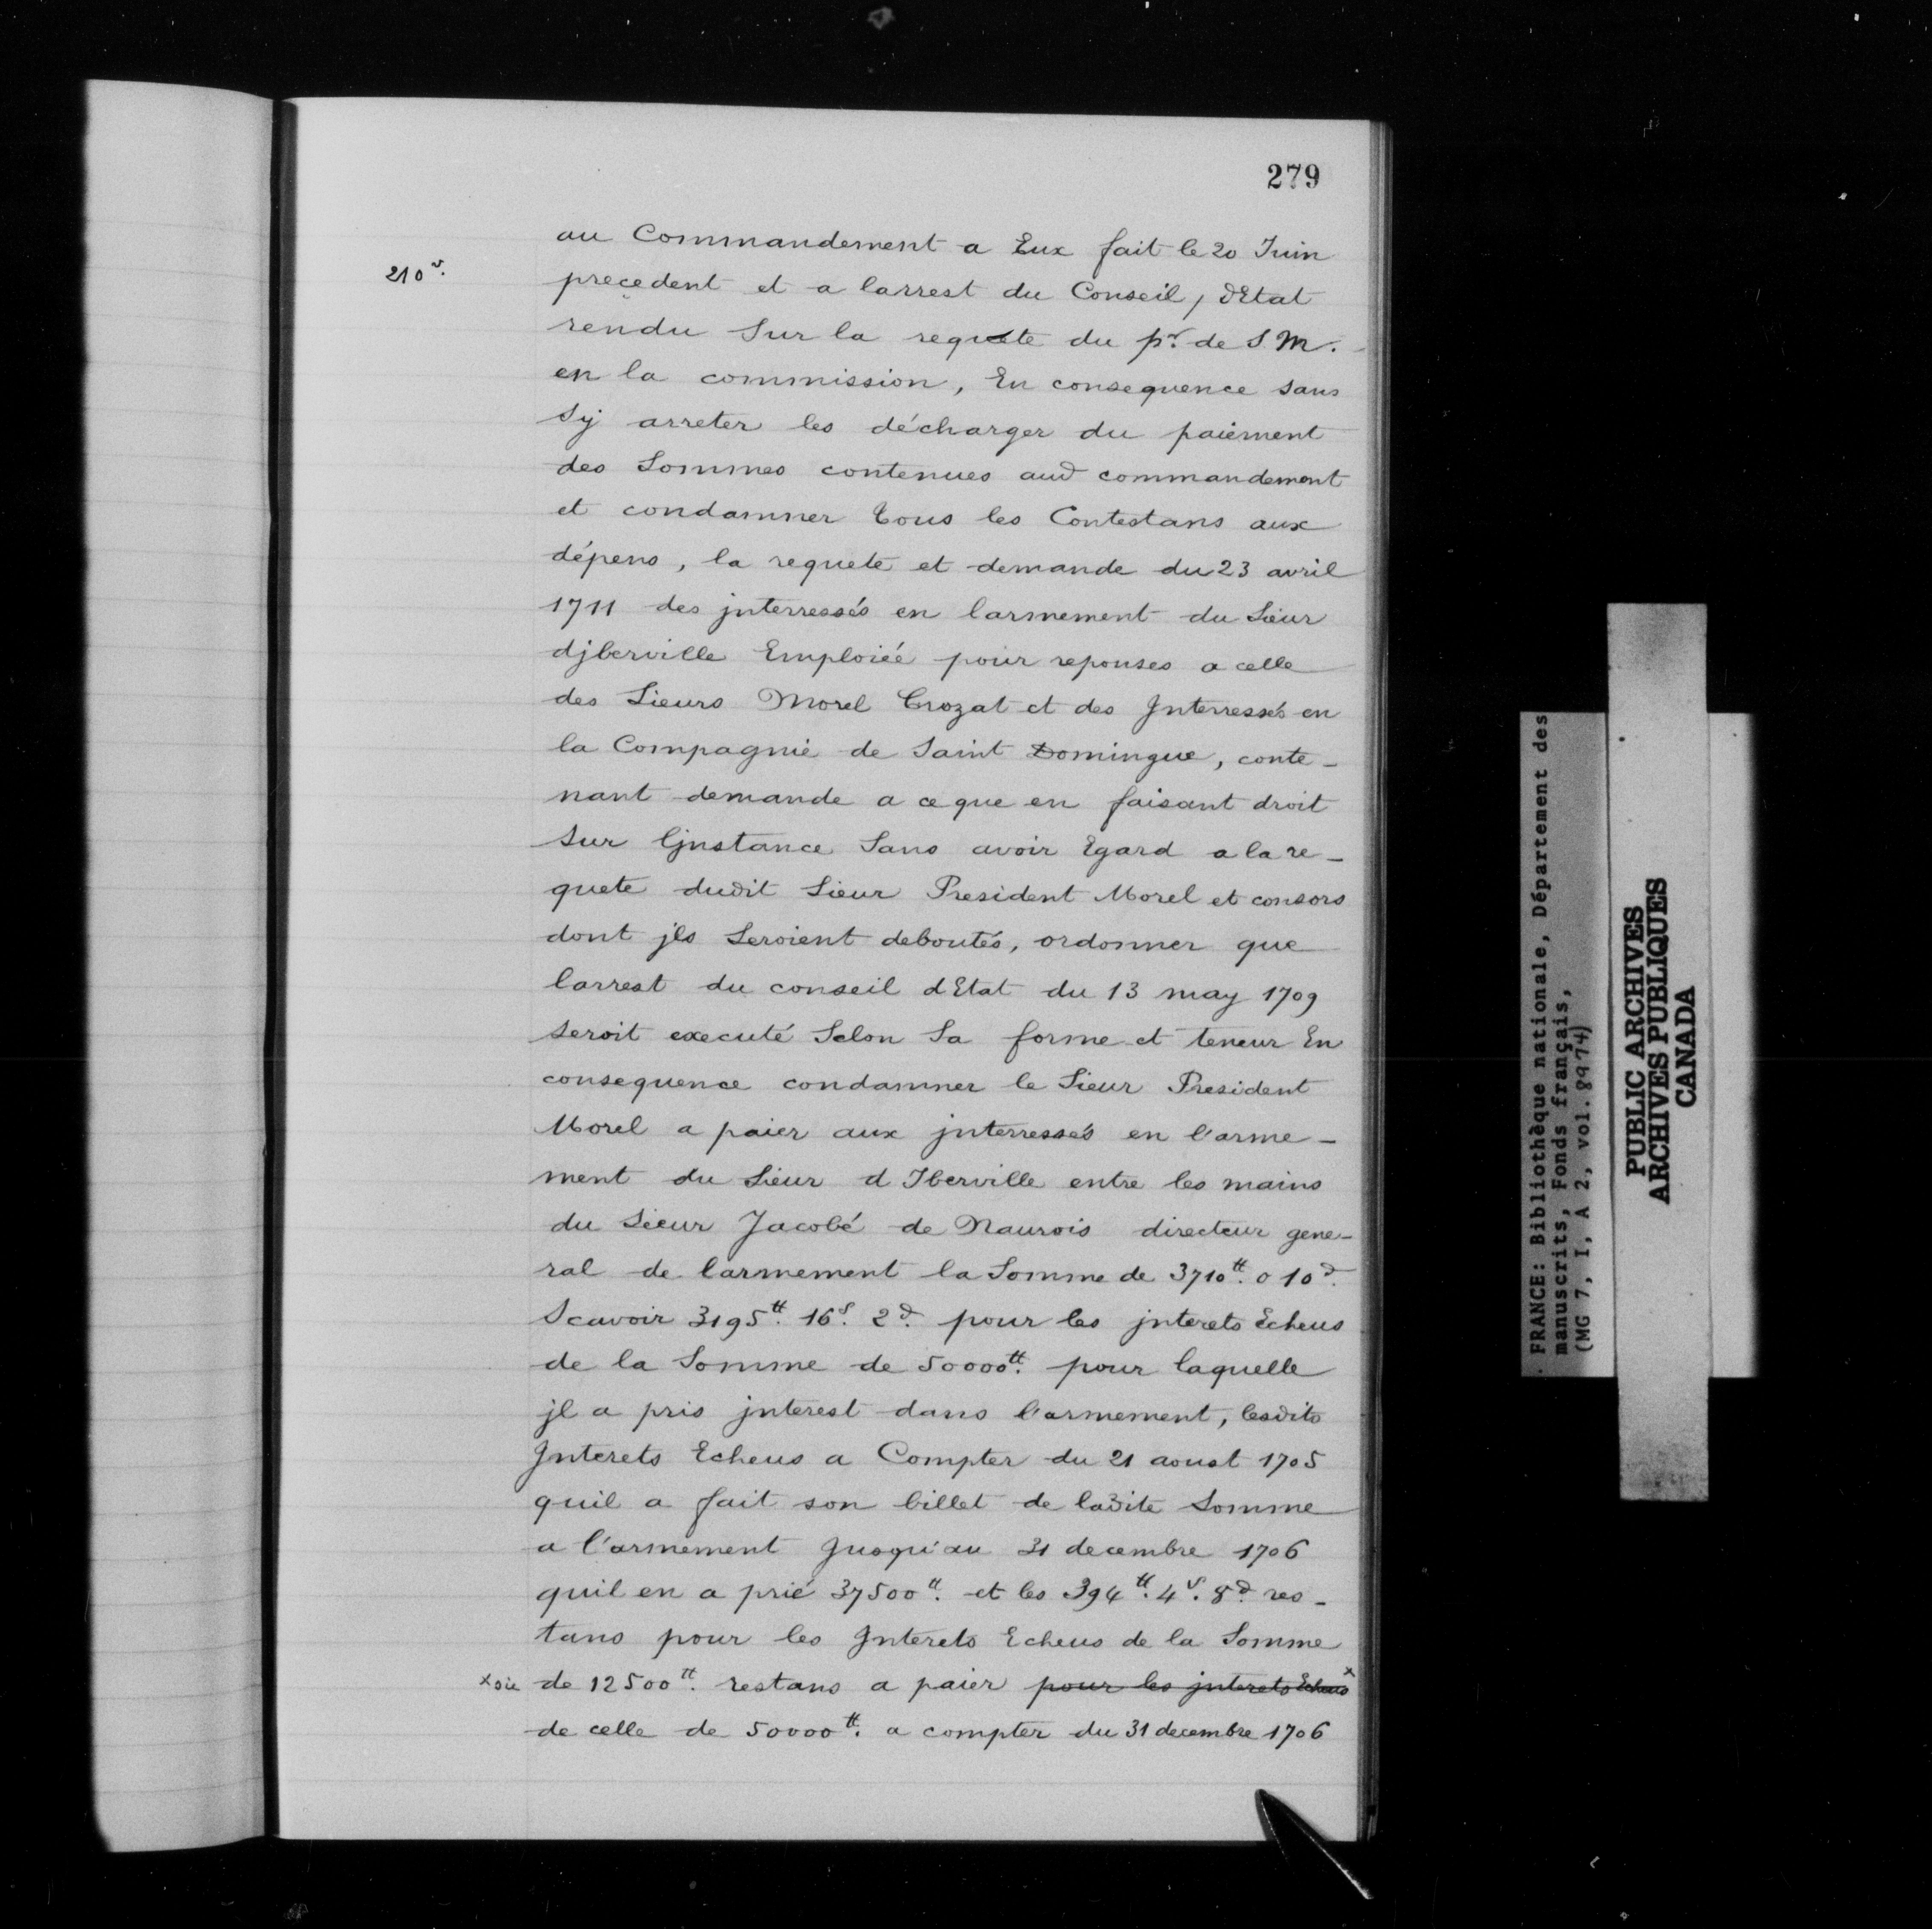 279
au Commandement a Eux fait le 20 Juin
210 v.
precedent et a larrest du Conseil, dEtat
rendu Sur la requete du pr. de S M.
en la commission, En consequence sans
Sÿ arreter les décharger du paiement
des Sommes contenues aud commandement
et condamner tous les Contestans aux
dépens, la requete et demande du 23 avril
1711 des jnterressés en larmement du Sieur
djberville Emploiéé pour reponses a celle
des Sieurs Morel Crozat et des Jnterressés en
la Compagnie de Saint Domingue, conte_
nant demande a ce que en faisant droit
Sur Ljnstance Sans avoir Egard a la re_
quete dudit Sieur President Morel et consors
dont jls Seroient deboutés, ordonner que
larrest du conseil dEtat du 13 may 1709
seroit executé Selon Sa forme et teneur En
consequence condamner le Sieur President
Morel a paier aux jnterressés en l'arme_
ment du Sieur d Iberville entre les mains
du Sieur Jacobé de Naurois directeur gene_
ral de larmement la Somme de 3710tt. 0 10d.
Scavoir 3195tt. 16s. 2d. pour les jnterets Echeus
de la Somme de 50000tt. pour laquelle
jl a pris jnterest dans l'armement, lesdits
Jnterets Echeus a Compter du 21 aoust 1705
quil a fait son billet de ladite Somme
a l'armement Jusqu'au 31 decembre 1706
quil en a prié 37500tt. et les 394tt. 4s. 8d. res_
tans pour les Jnterets Echeus de la Somme
x sic de 12500tt. restans a paier pour les jnterets Echeus x
de celle de 50000tt. a compter du 31 decembre 1706
FRANCE: Bibliothèque nationale, Département des
manuscrits, Fonds français,
(MG 7, I, A 2, vol. 8974)
PUBLIC ARCHIVES
ARCHIVES PUBLIQUES
CANADA